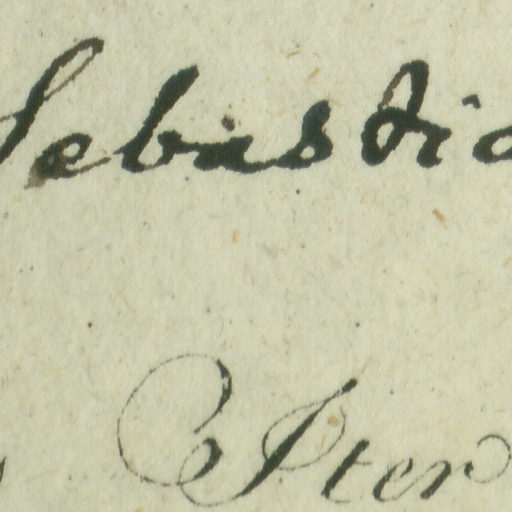 Sebastia
Iter